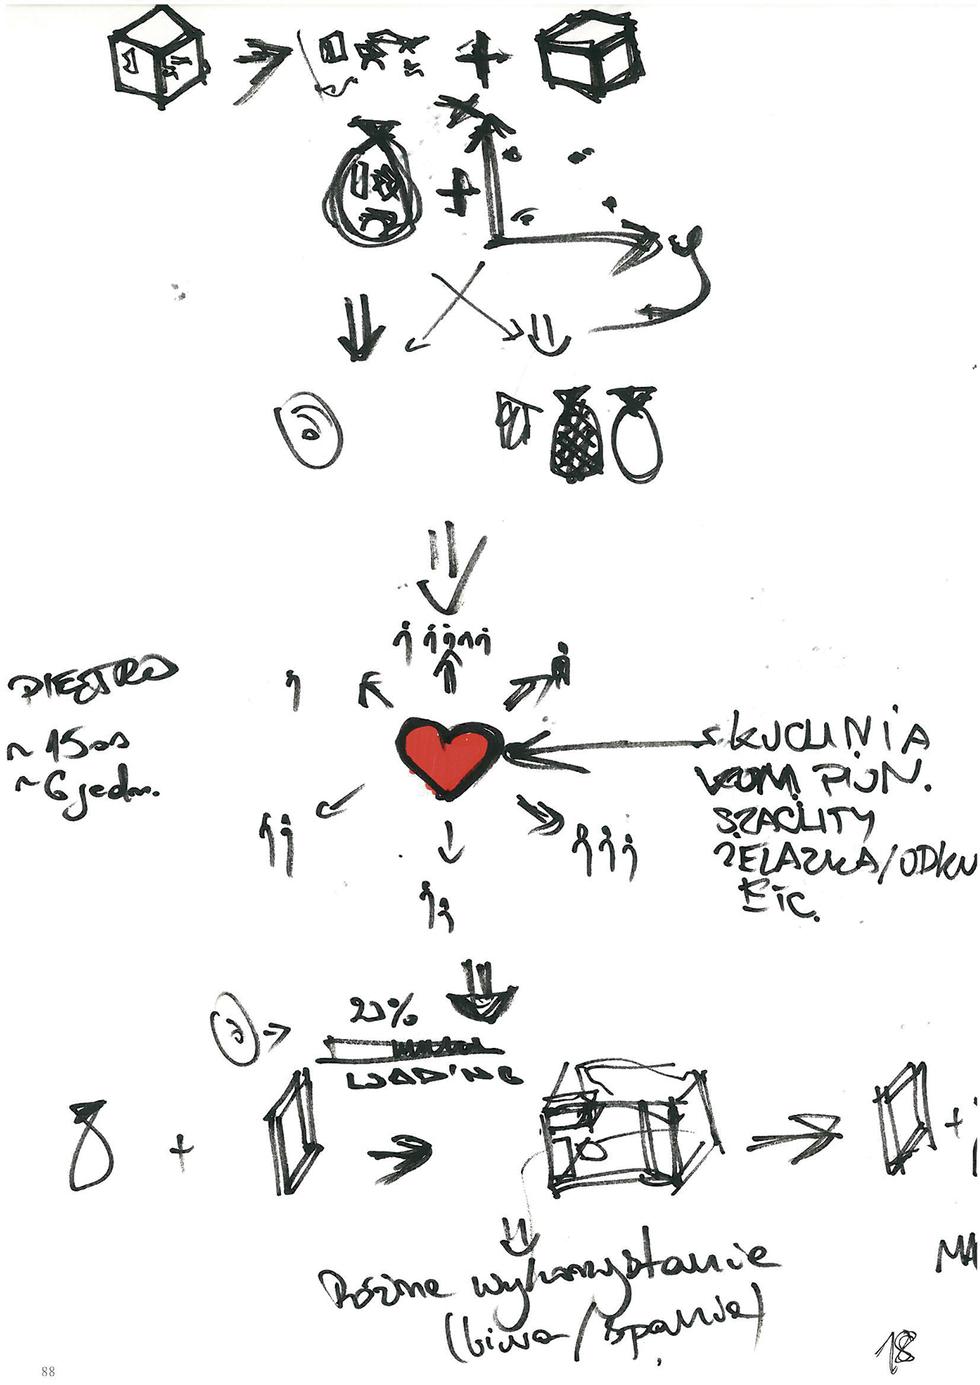 x
y
PIĘTRO
~ 15 os
~ 6 jedn.
KUCHNIA
KOM. PION.
SZACHTY
ŻELAZKA/ODKU
ETC.
20%
LOADING
MA
Różne wykorzystanie
(biura/spanie)
18
88